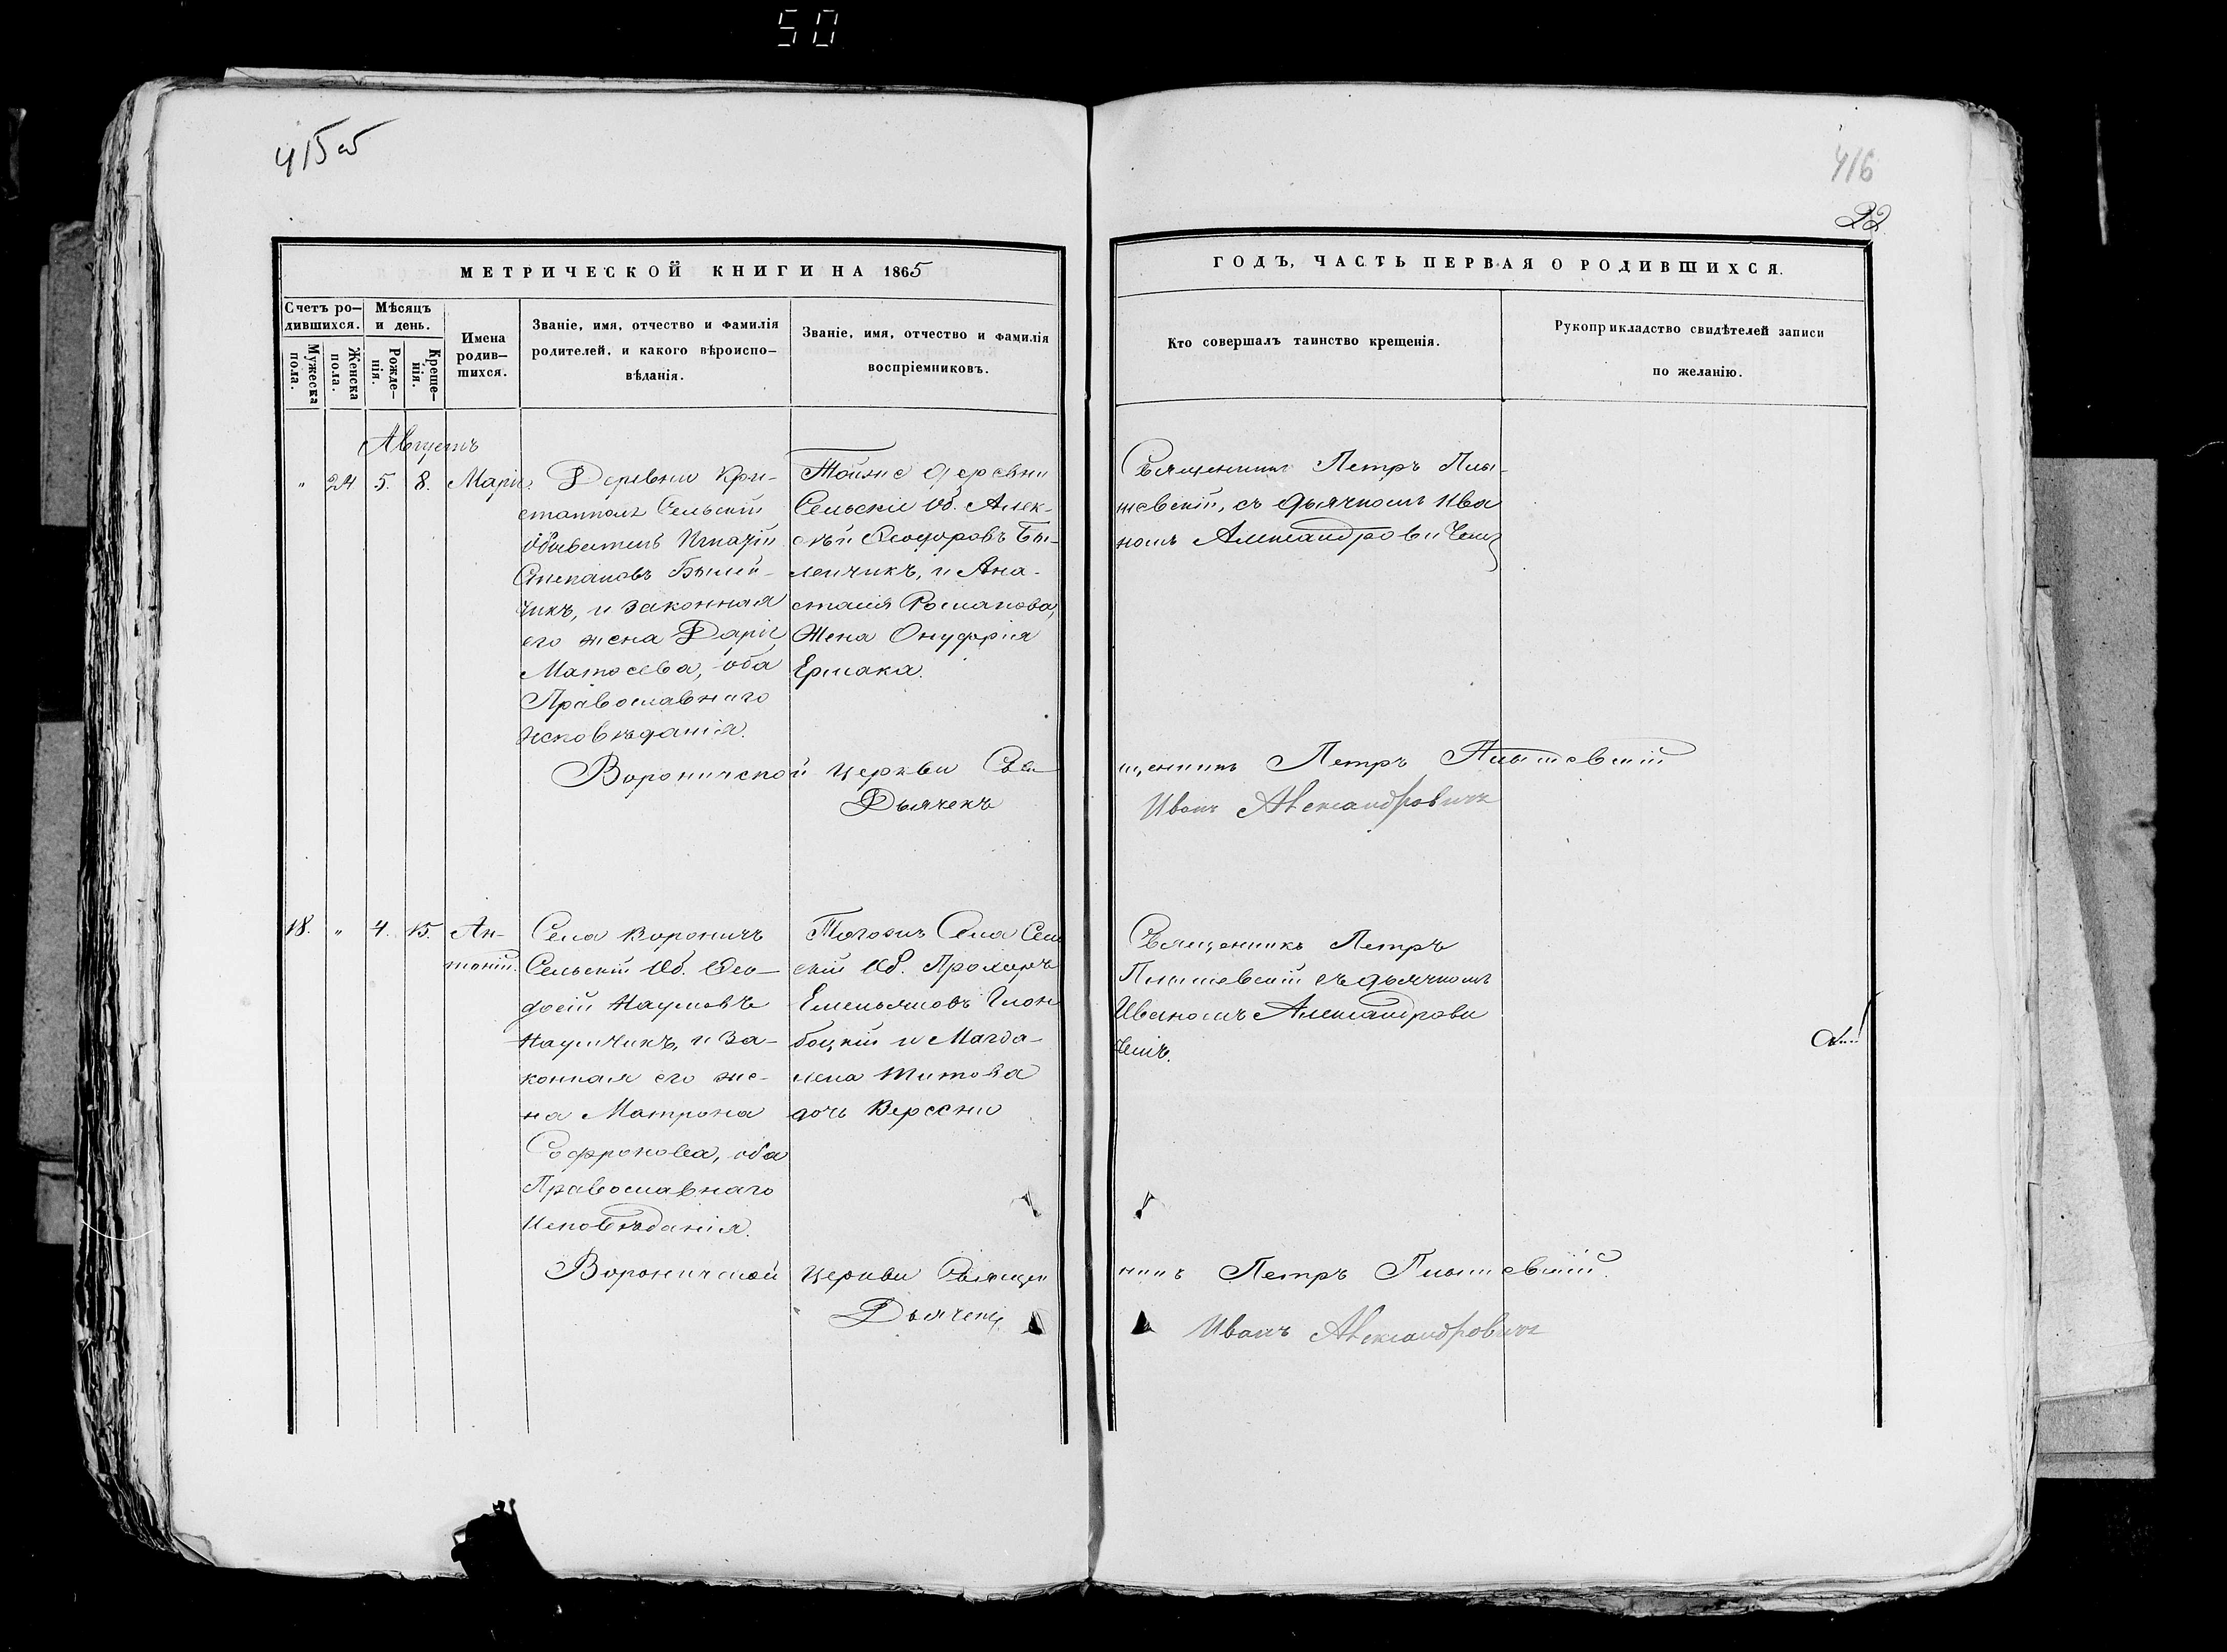 50
415 об
416
22
МЕТРИЧЕСКОЙ КНИГИ НА 1865
ГОДЪ, ЧАСТЬ ПЕРВАЯ О РОДИВШИХСЯ.
Счетъ ро-
дившихся.
Мужеска
пола.
Женска
пола.
Мѣсяцъ
и день.
Рожде-
нія.
Креще-
нія.
Имена
родив-
шихся.
Званіе, имя, отчество и фамилія
родителей, и какого вѣроиспо-
вѣданія.
Званіе, имя, отчество и фамилія
воспріемниковъ.
Кто совершалъ таинство крещенія.
Рукоприкладство свидѣтелей записи
по желанію.
Августъ
" 24 5. 8. Марія.
Деревни Кри-
Сельскій
Обыватель Игнатій
Степановъ
чикъ, и законная
его жена Дарія
оба
Православнаго
Исповѣданія.
Тойже деревни
Сельскіе Об. Алек-
сѣй Ѳеодоровъ Бы-
ленчикъ, и Ана-
стасія Романова,
Жена Онуфрія
Ермака.
Священникъ Петръ
съ дьячкомъ Ива
номъ Александрови чемъ
Вороничской Церкви Свя
щенникъ Петръ
Дьячекъ
Иванъ Александровичъ
18. " 4. 15. Ан-
тоній.
Села Вороничъ
Сельскій Об. Ѳео-
досій Наумовъ
Наумчикъ, и за-
конная его же-
на Матрона
Софронова, оба
Православнаго
Исповѣданія.
Тогожъ Села Сель
скій Об. Прохоръ
Емельяновъ
и Магда-
лена Титова
дочь
Священникъ Петръ
съ дьячкомъ
Иваномъ Александрови
чемъ.
Вороничской Церкви Священ
никъ Петръ
Дьячекъ
Иванъ Александровичъ